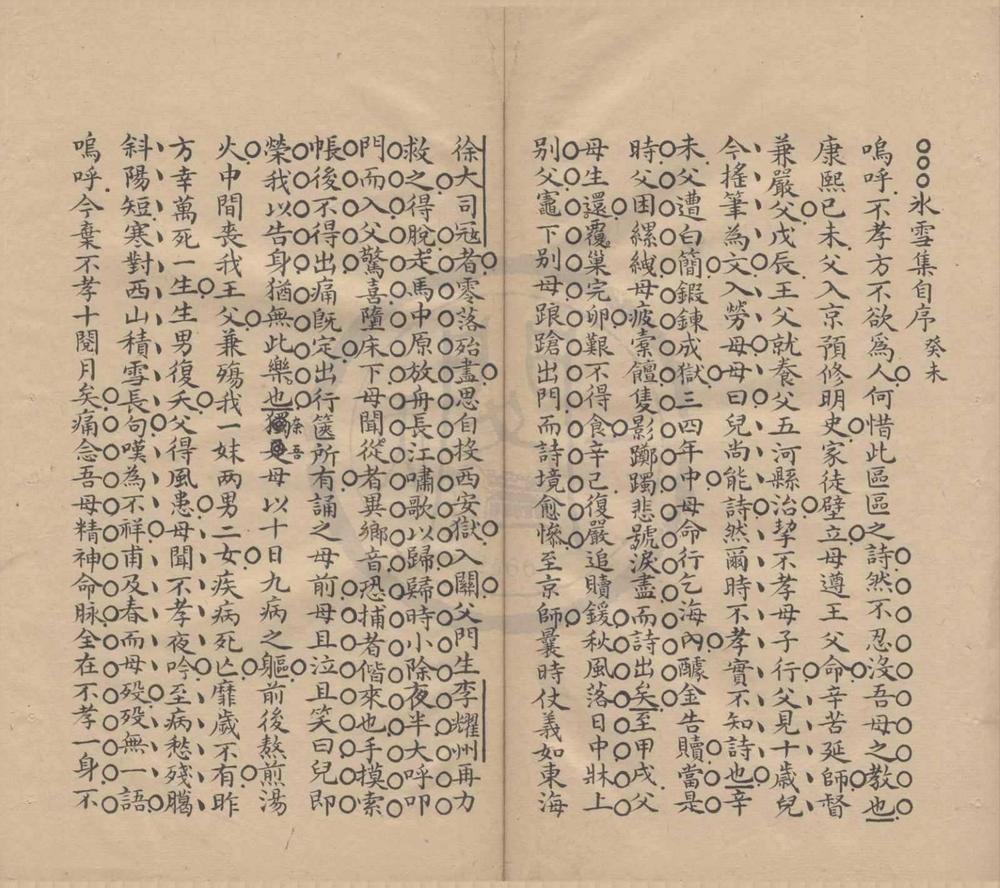 氷雪集自序 癸未
嗚呼不孝方不欲爲人何惜此區區之詩然不忍沒吾母之教也
康熙已未父入京預修明史家徒壁立母遵王父命辛苦延師督
兼嚴父戊辰王父就養父五河縣治挈不孝母子行父見十歲兒
今搖筆為文入勞母母曰兒尚能詩然爾時不孝實不知詩也辛
未父遭白簡鍛鍊成獄三四年中母命行乞海內醵金告贖當是
時父困縲絏母疲橐饘隻影躑躅悲號淚盡而詩出矣至甲戌父
母生還覆巢完卵艱不得食辛已復嚴追贖鍰秋風落日中牀上
別父竈下別母踉蹌出門而詩境愈慘至京師曩時仗義如東海
徐大司冠者零落殆盡思自投西安獄入關父門生李耀州再力
救之得脫走馬中原放舟長江嘯歌以歸歸時小除夜半大呼叩
門而入父驚喜墮床下母聞從者異鄉音恐捕者偕來也手摸索
帳後不得出痛旣定出行篋所有誦之母前母且泣且笑曰兒即
榮我以告身猶無此樂也吾母以十日九病之軀前後熬煎湯
火中間喪我王父兼殤我一妹两男二女疾病死亾靡歲不有昨
方幸萬死一生生男復夭父得風患母聞不孝夜吟至病愁殘臈
斜陽短寒對西山積雪長句嘆為不祥甫及春而母歿歿無一語
嗚呼今棄不孝十閱月矣痛念吾母精神命脉全在不孝一身不